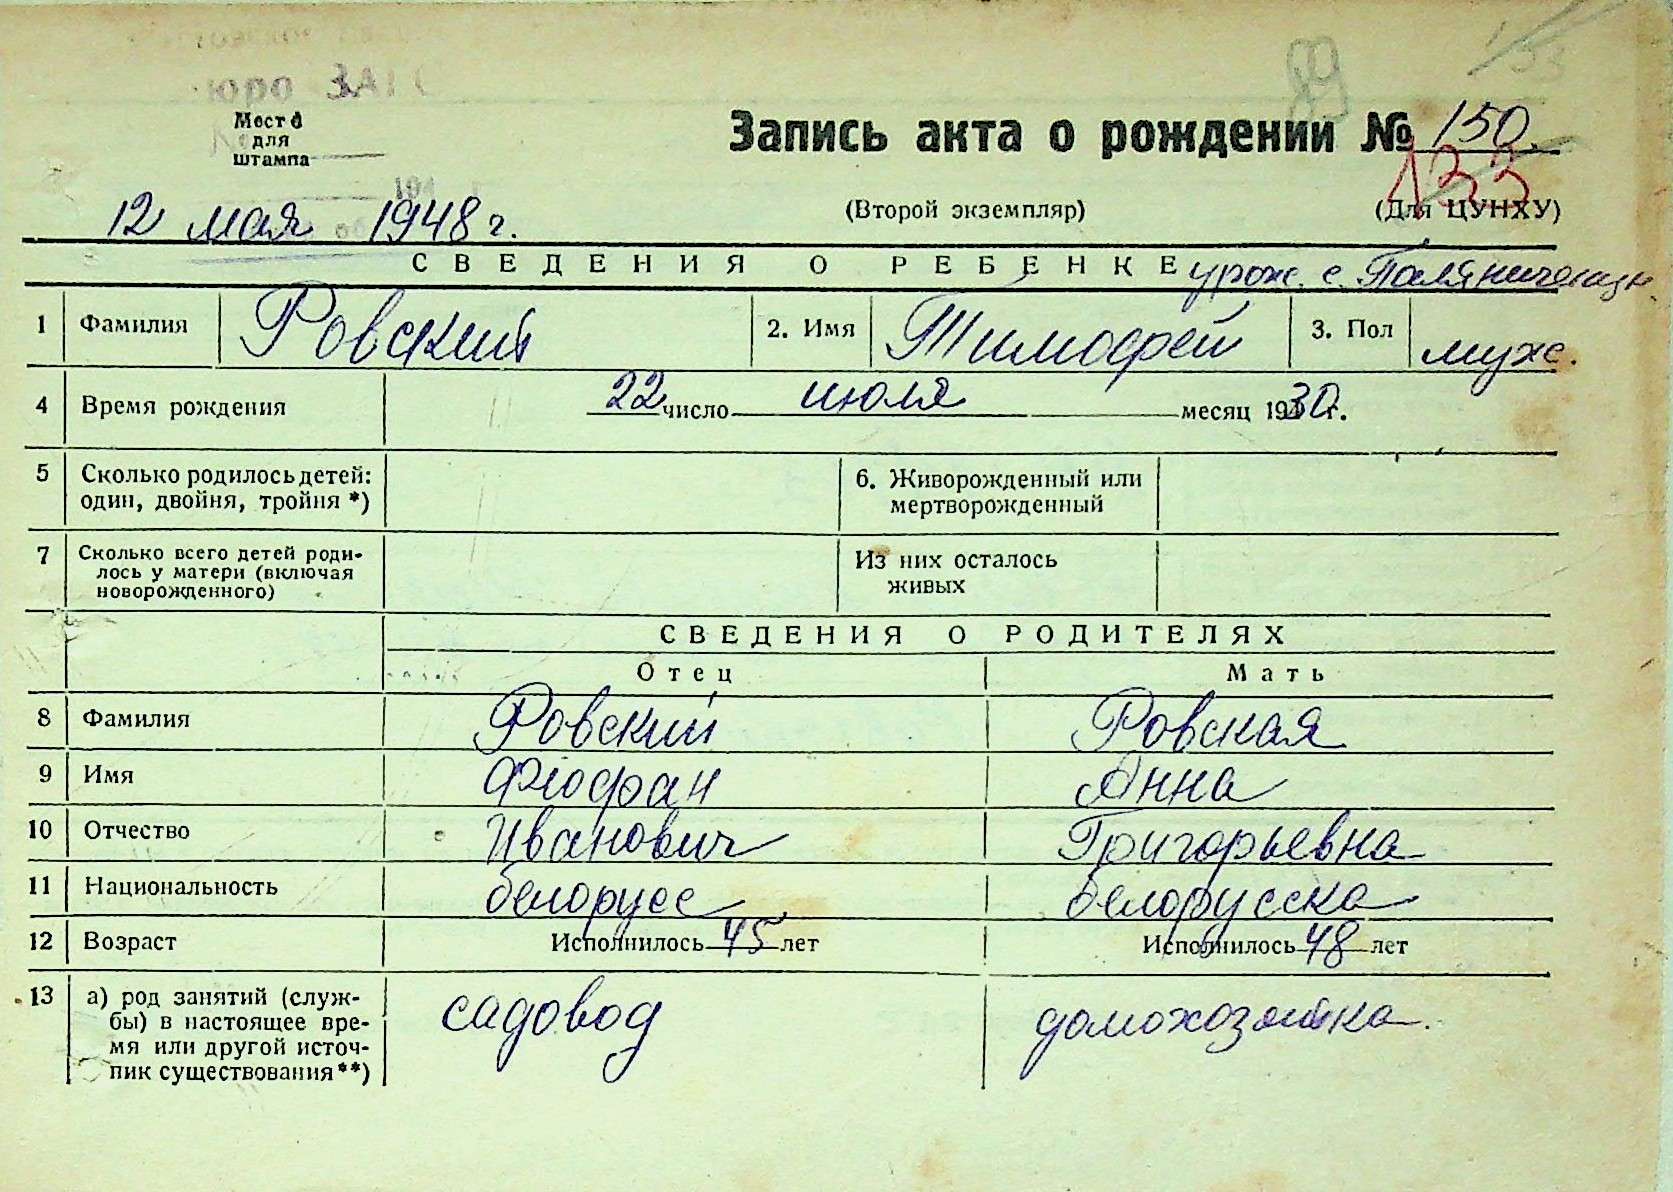 бюро ЗАГС
Место
для
штампа
Запись акта о рождении № 150.
133
12 мая 1948 г.
(Второй экземпляр)
(Для ЦУНХУ)
СВЕДЕНИЯ О РЕБЕНКЕ урож. с.
1 Фамилия Ровский 2. Имя Тимофей 3. Пол муж.
4 Время рождения 22 число июля месяц 1930 г.
5 Сколько родилось детей: 6. Живорожденный или
один, двойня, тройня *) мертворожденный
7 Сколько всего детей роди- Из них осталось
лось у матери (включая живых
новорожденного)
СВЕДЕНИЯ О РОДИТЕЛЯХ
Отец Мать
8 Фамилия Ровский Ровская
9 Имя Фиофан Анна
10 Отчество Иванович Григорьевна
11 Национальность белорусс белорусска
12 Возраст Исполнилось 45 лет Исполнилось 48 лет
13 а) род занятий (служ- садовод домохозяйка.
бы) в настоящее вре-
мя или другой источ-
ник существования**)